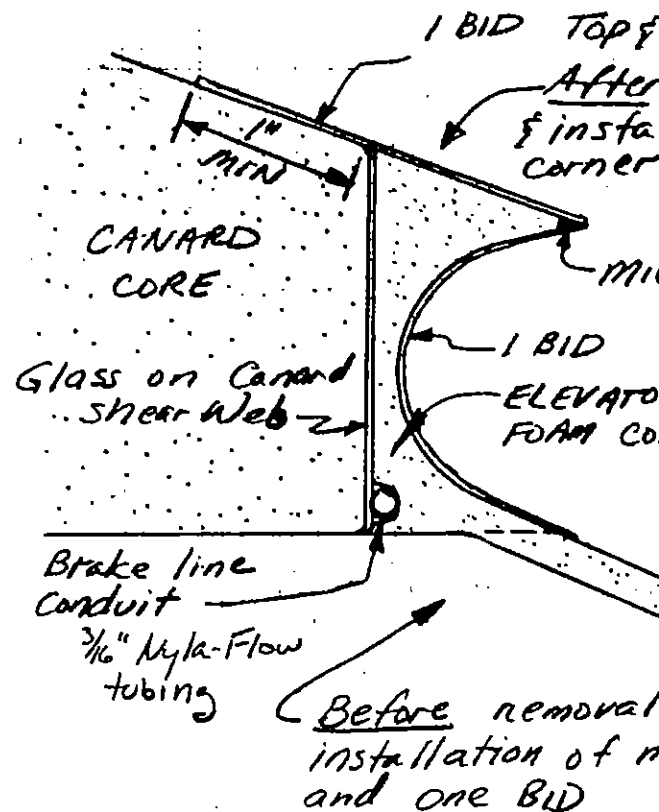 1 BID Top &
After
& insta
corner
1"
MIN
CANARD
CORE
MI
1 BID
Glass on Canard
shear Web
ELEVATO
FOAM CO
Brake line
Conduit
3/16" Nyla-Flow
tubing
Before removal
installation of m
and one BID